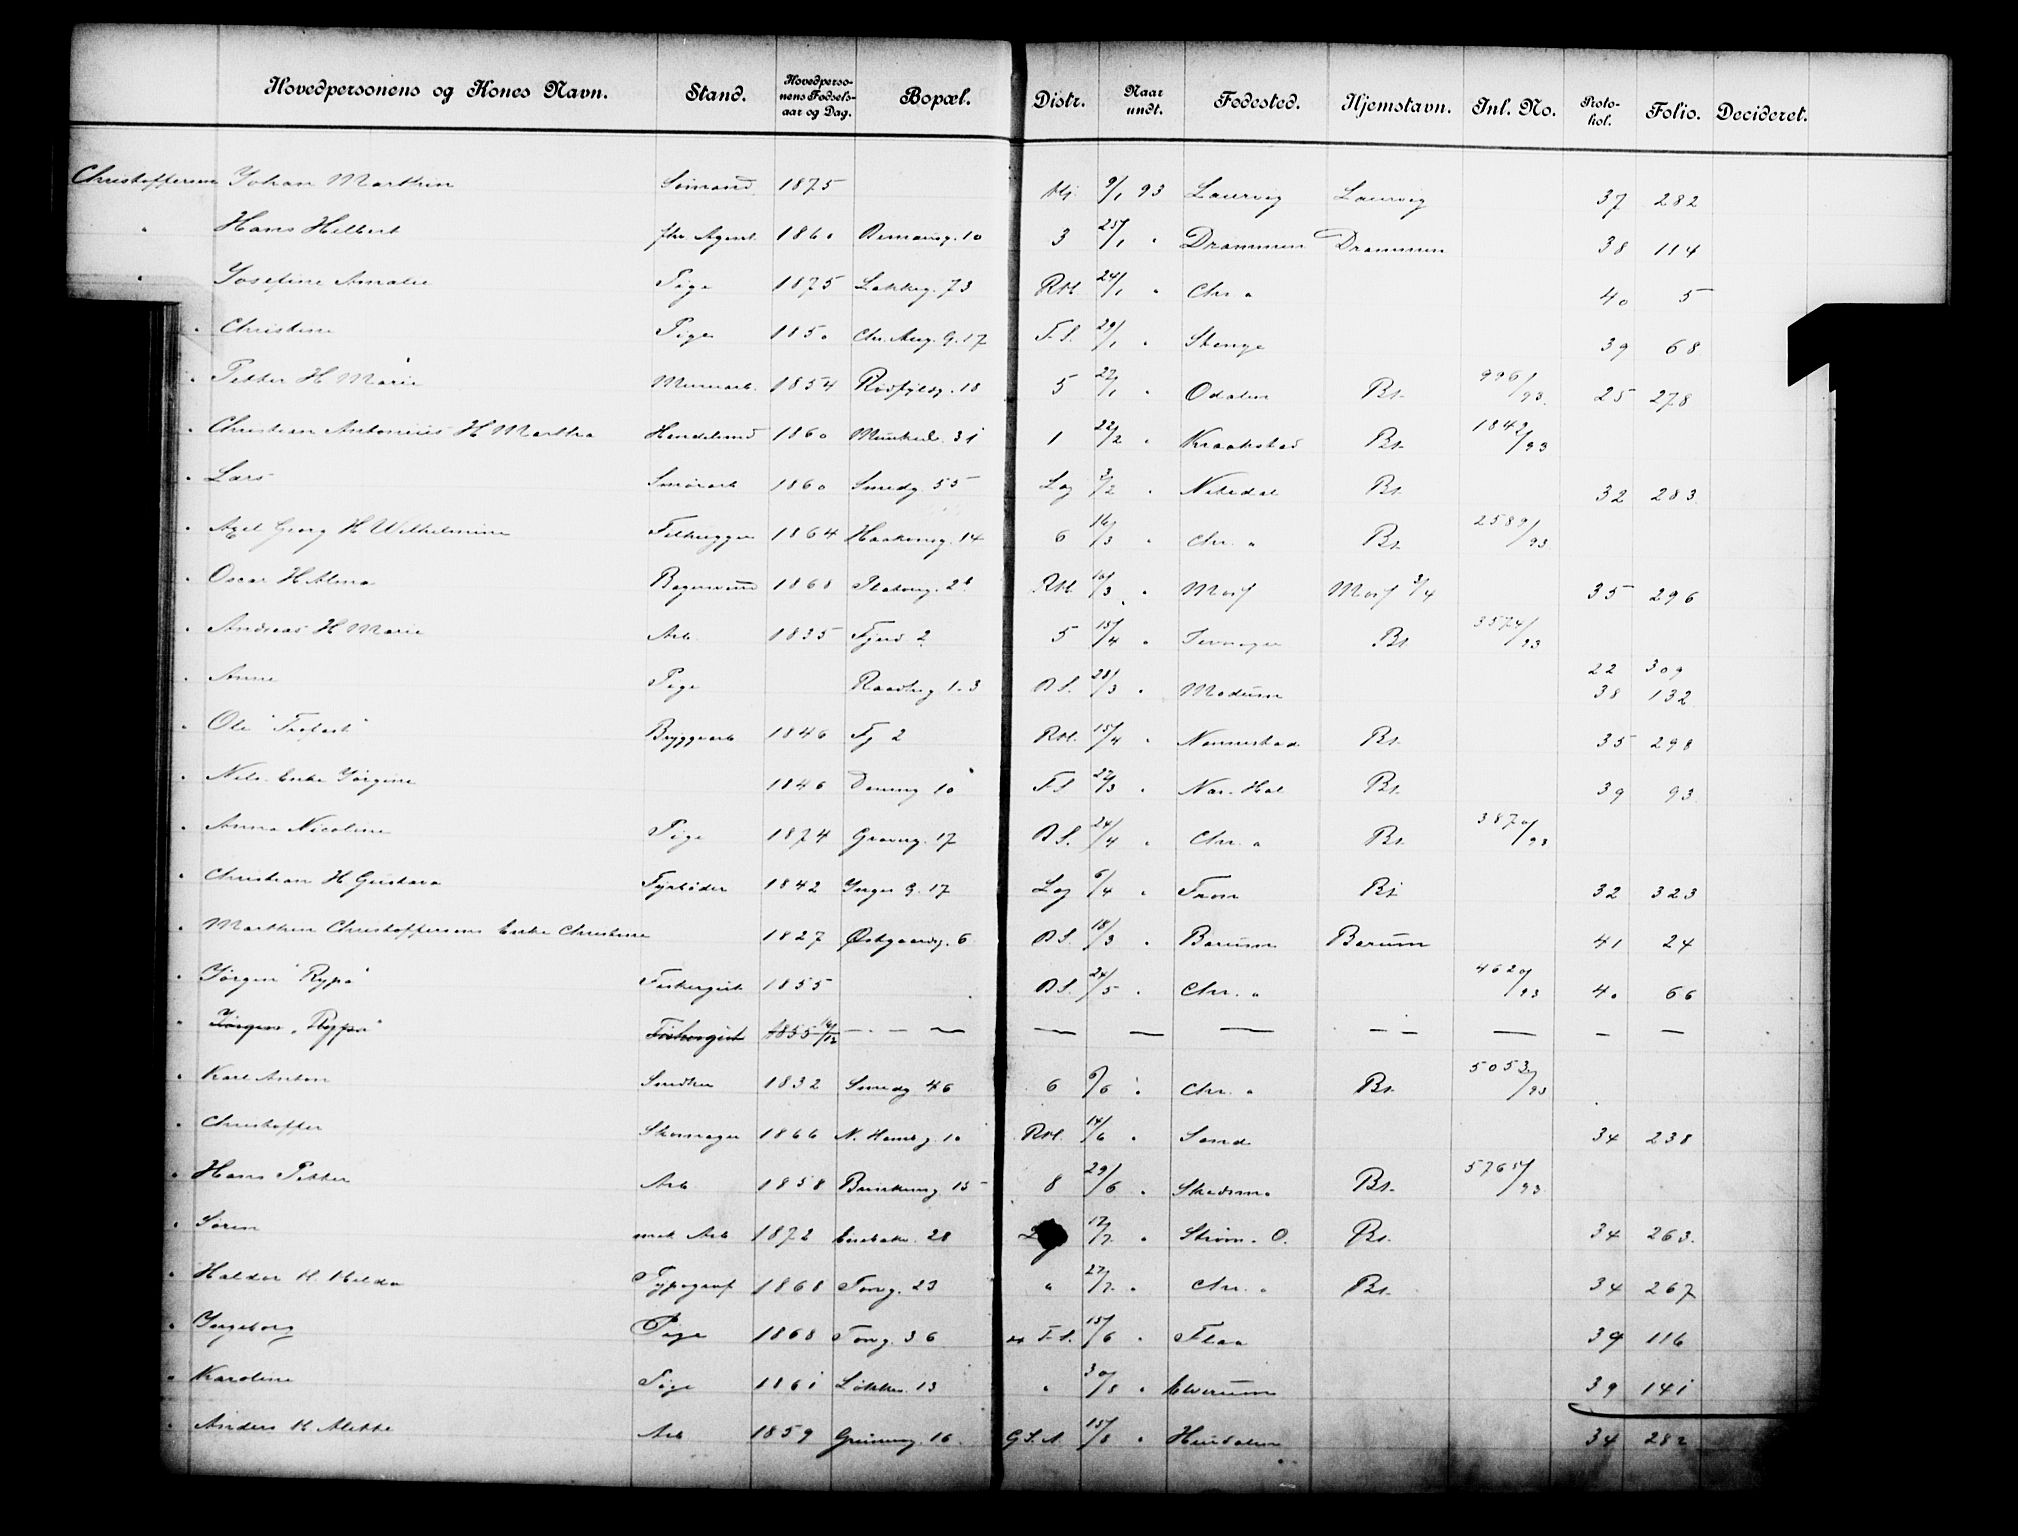 Hovedpersonens og Kones Navn. Stand. Hovedpersonens Fødselsaar og Dag. Bopæl. Distr. Naar undt. Fødested. Hjemstavn. Inl. No. Protokol. Folio. Decideret.
Christoffersen Johan Marthin Sømand 1875 9/1 93 Laurvig Laurvig 37 282
" Hans Hilbert fhv. Agent 1860 10 3 25/1 " Drammen Drammen 38 114
" Josefine Amalie Pige 1875 Løkkeg. 73 RM. 24/1 " Chr. a 40 5
" Christine Pige 1850 Chr. Aug. G. 17 F. S. 29/1 " 39 68
" Petter H Marie Murerarb. 1854 18 5 27/1 " Odalen Bt. 996/93 25 278
" Christian Antonius H Martha Handelsmd 1860 Munkeds. 31 1 22/2 " Kraakstad Bt. 1842/93
" Lars 1860 Smedg 55 Log 3/2 " Nitedal Bt. 32 283
" Axel Georg H Wilhelmine Filhugger 1864 Haakonsg. 14 6 16/3 " Chr. a Bt. 2589/93
" Oscar H Alma Bogermund 1868 RM. 10/3 " Moss Moss 3/4 35 296
" Andreas H Marie Arb 1835 Fjerd 2 5 15/4 " Jevnager Bt 3574/93
" Anne Pige 1-3 B S. 23/3 " Modum 22 309
38 132
" Ole "Trefast" Bryggearb 1846 Fj 2 RM. 15/4 " Nannestad Bt. 35 298
" Nils Enke Jørgine 1846 10 F S 22/3 " Næs. Hal Bt. 39 93
" Anna Nicoline Pige 1874 Graverg. 17 B S. 24/4 " Chr. a Bt. 3870/93
" Christian H Gustava Fyrbøder 1842 Inger G. 17 Log 6/4 " Bt 32 323
" Marthin Christoffersens Enke Christine 1827 Østgaardsg. 6 B S. 18/3 " Bærum Bærum 41 24
" Jørgen "Rypa" Fiskergut 1855 B S. 24/5 " Chr. a 4620/93 40 66
" Jørgen "Rypa" Fiskergut 1855 16/12 — — — — — — — — — —
" Karl Anton Snedker 1832 Smedg 46 6 6/6 " Chr. a Bt. 5053/93
" Christoffer Skomager 1866 N. Hamb g 10 RM. 14/6 " Sand 34 238
" Hans Petter Arb 1858 Brinkeng 15 8 29/6 " Skedsmo Bt. 5765/93
" Søren mek Arb 1872 Enebakv. 28 17/7 " Strøm. O. Bt. 34 263.
" Haldor H. Hilda Typograf 1868 Torvg. 23 " 27/7 " Chr. a Bt. 34 267
" Ingeborg Pige 1868 Torvg. 36 F. S. 15/6 " Flaa 39 116
" Karoline Pige 1861 Løkkev. 13 " 30/8 " Elverum 39 141
" Anders H Alette Arb 1859 Grünerg. 16. G S. N. 15/8 " Hurdalen 34 282